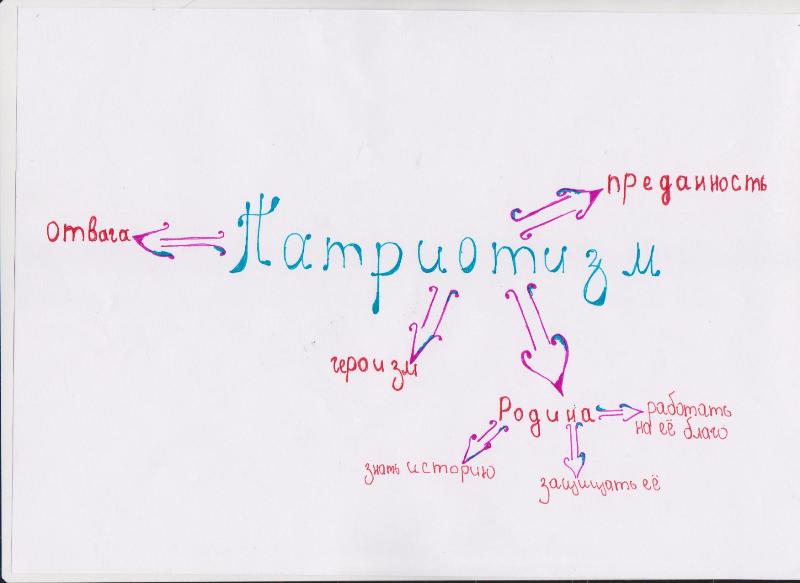 преданность
отвага
Патриотизм
героизм
Родина
работать
на её благо
знать историю
защищать её